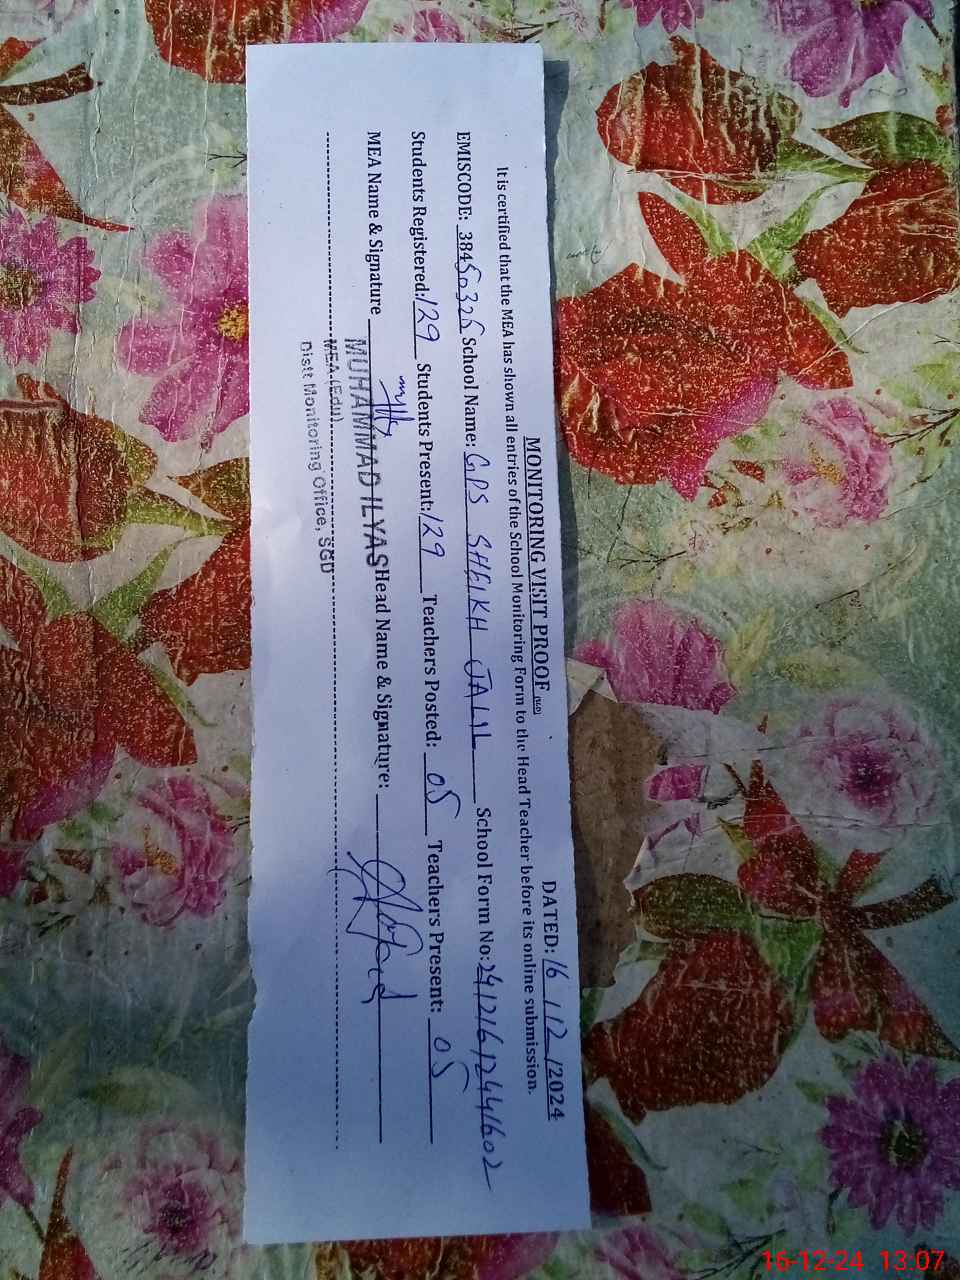 MONITORING VISIT PROOF
DATED: 16/12/2024
It is certified that the MEA has shown all entries of the School Monitoring Form to the Head Teacher before its online submission.
EMISCODE: 38450326 School Name: GPS SHEIKH JALIL School Form No: 241216124441602
Students Registered: 129 Students Present: 129 Teachers Posted: 05 Teachers Present: 05
MEA Name & Signature Head Name & Signature:
MUHAMMAD ILYAS
MEA (Edu)
Distt Monitoring Office, SGD
16-12-24 13:07